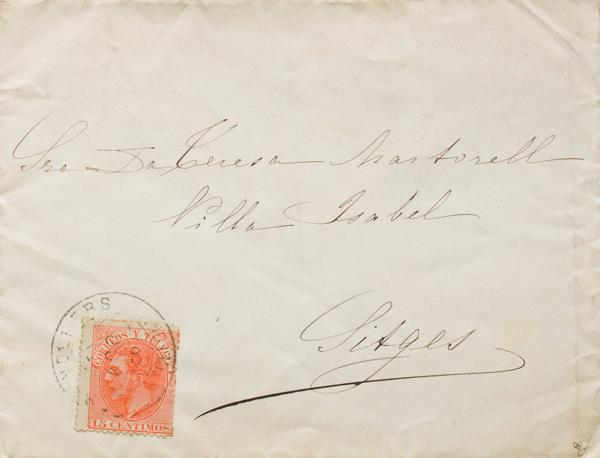 Sra Da Teresa Martorell
Villa Isabel
Sitges
CORREOS Y TELEGFS
15 CENTIMOS